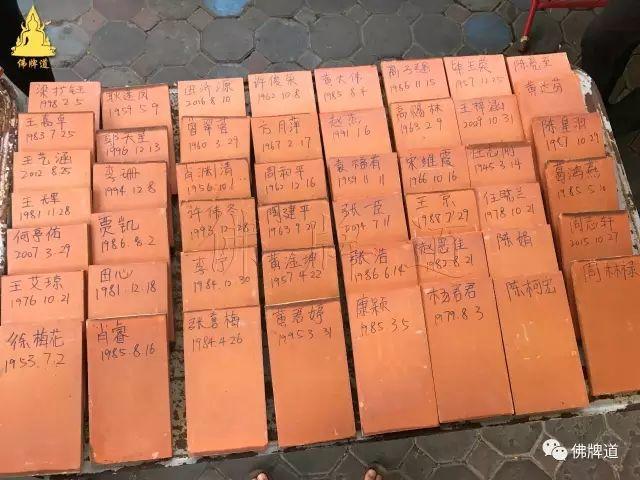 佛牌道
梁才钰
1998.2.5
王嘉卓
1983.7.25
王艺涵
2012.8.25
王辉
1981.11.28
何亭佑
2007.3.29
王艾琼
1976.10.21
徐梅花
1953.7.2
耿连凤
1959.5.9
邹大星
1996.12.13
李珊
1994.12.8
贾凯
1986.8.2
田心
1981.12.18
肖睿
1985.8.16
田沂源
2016.8.10
肖翠霞
1960.3.29
肖渊清
1956.10.1
许伟冬
1993.12.28
李停
1984.12.30
张喜梅
1984.4.26
许俊英
1962.10.8
方月萍
1967.2.17
周和平
1962.12.16
周建平
1963.9.27
黄淦坤
1957.4.22
黄君婷
1995.3.31
袁大伟
1985.8.4
赵志
1991.1.6
袁福有
1959.11.11
张一臣
2014.7.11
张浩
1986.6.14
康颖
1985.3.5
1986.11.15
高赐林
1963.2.9
宋维霞
1966.10.16
王京
1988.7.29
赵思佳
1987.8.21
杨君君
1979.8.3
毕玉荣
1957.11.25
王梓涵
2009.10.31
任志刚
1945.3.14
任晓兰
1978.10.21
陈娟
陈柯宏
陈亮至
黄达芬
陈皇羽
1987.10.29
葛鸿燕
1985.5.10
周志轩
2015.10.27
周林禄
佛牌道